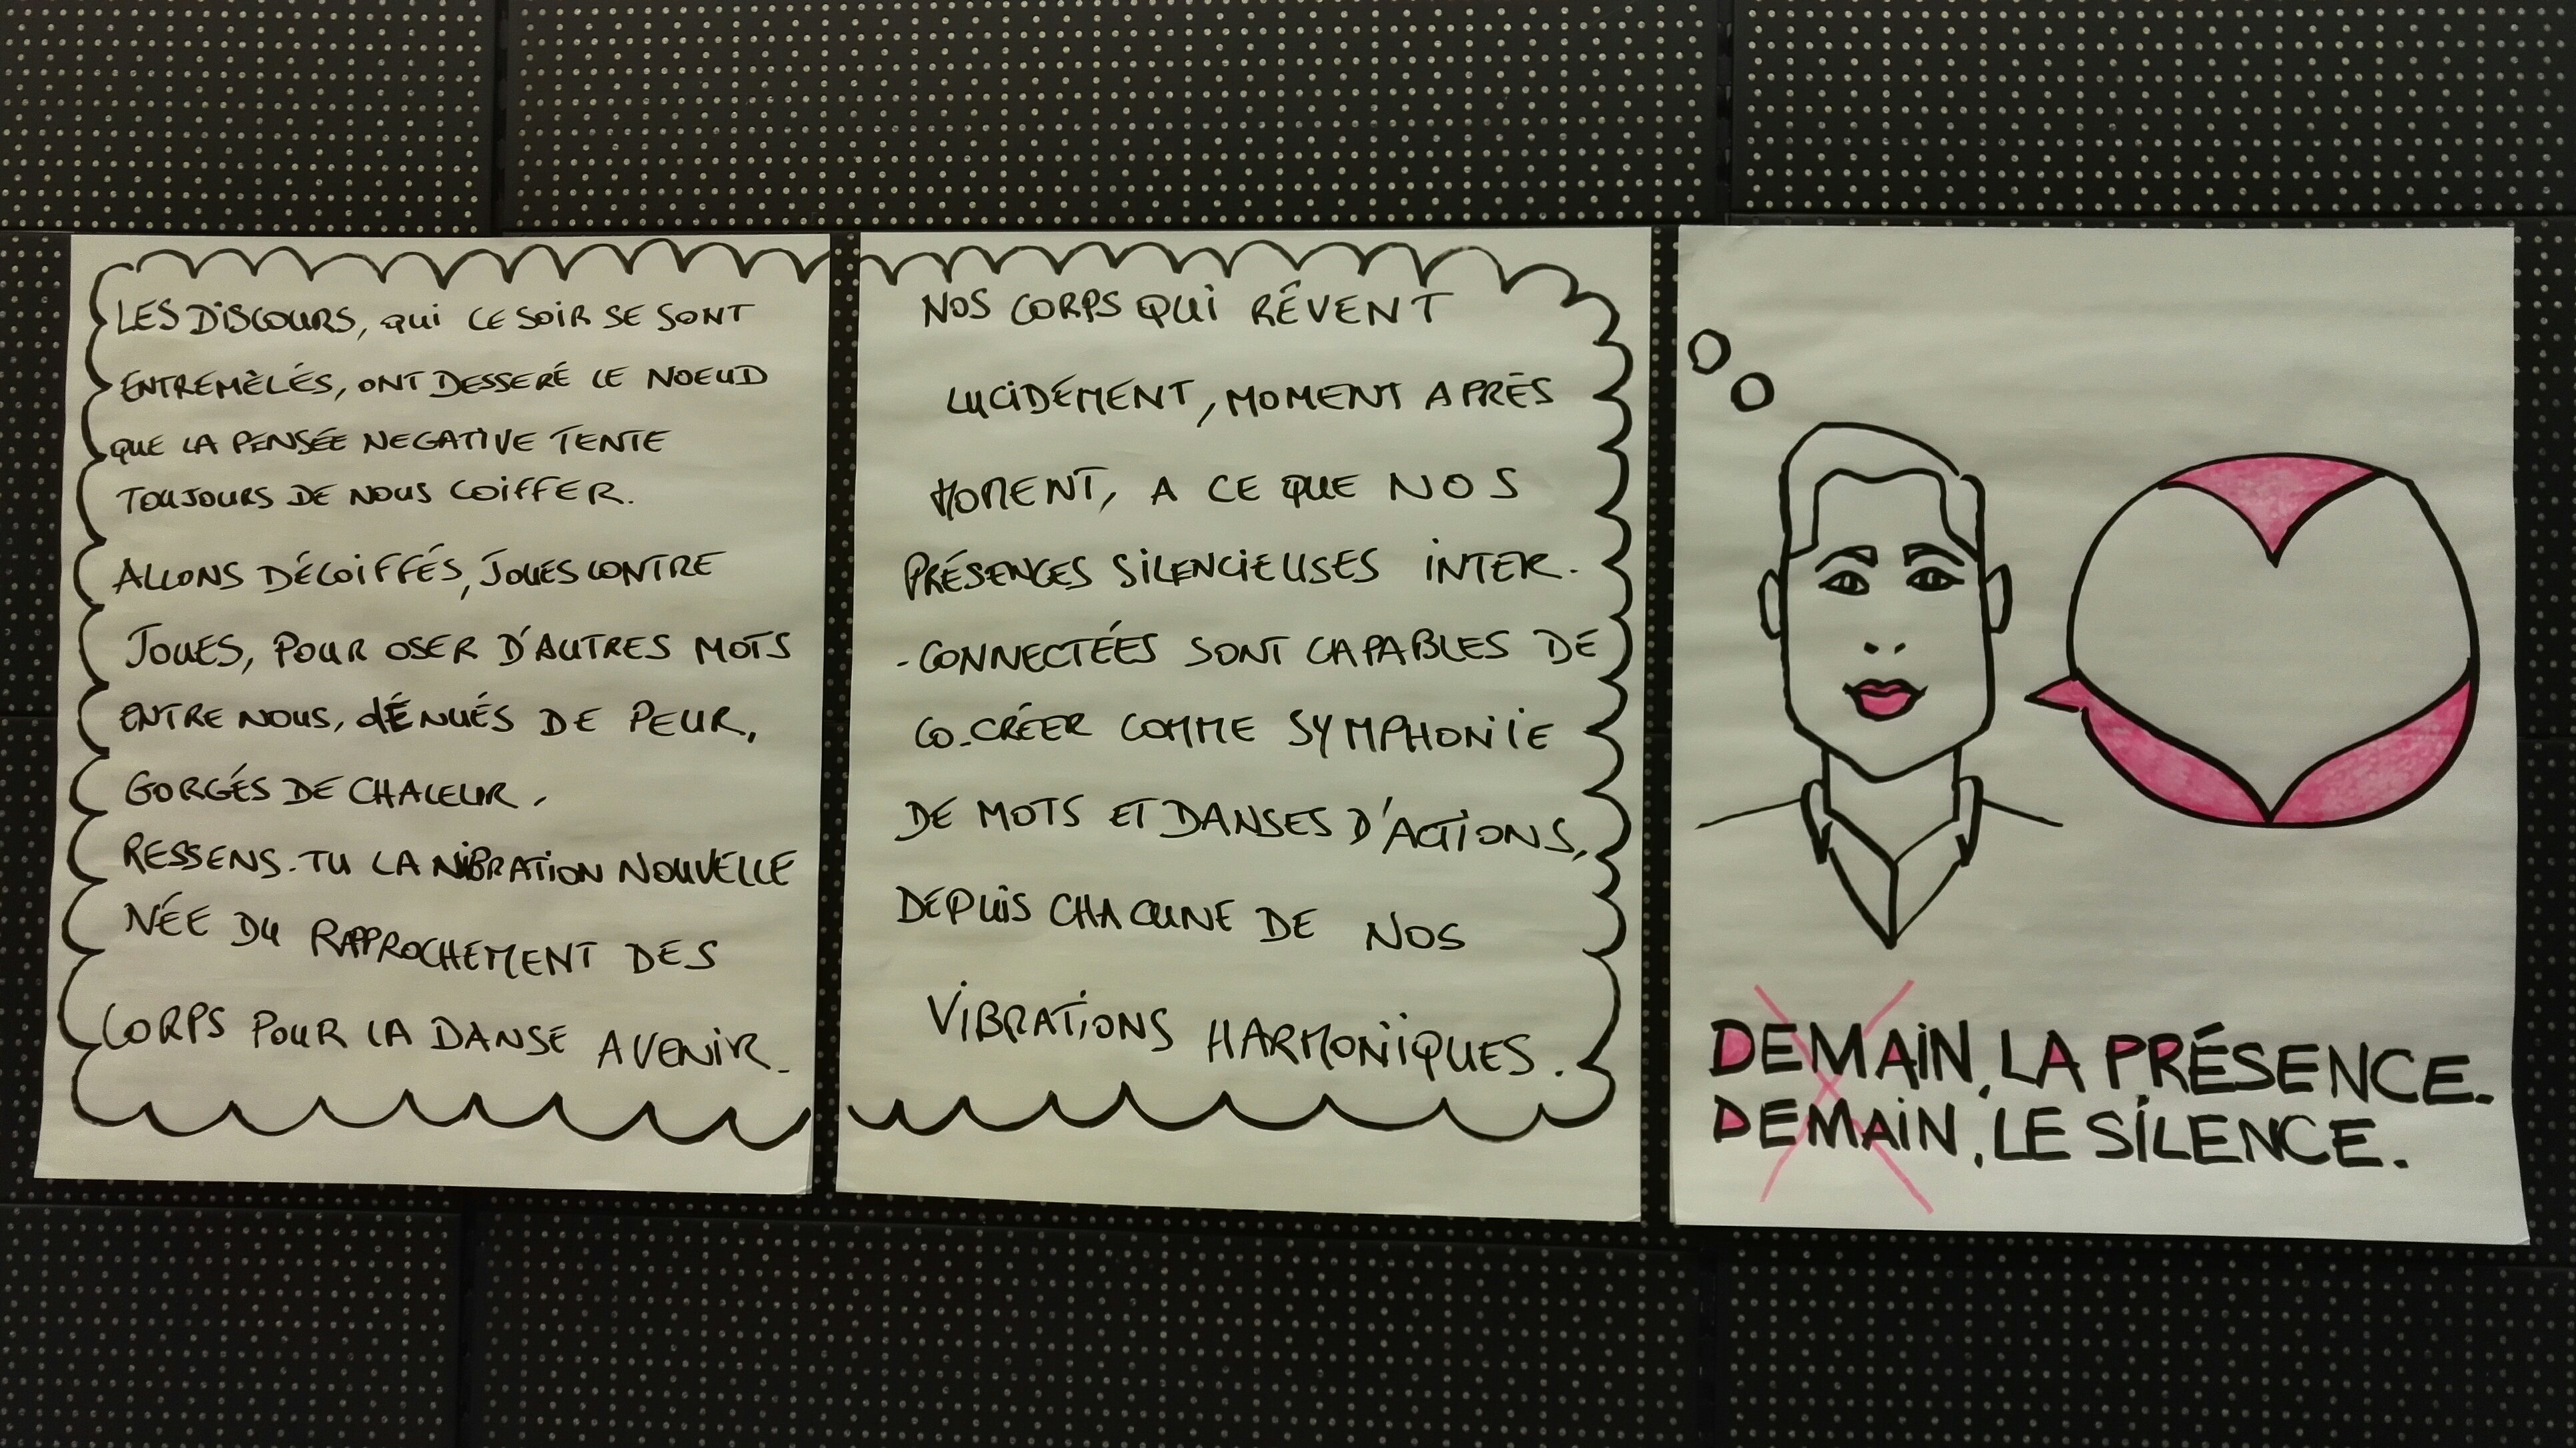 LES DISCOURS, QUI CE SOIR SE SONT
ENTREMÈLÉS, ONT DESSERÉ LE NOEUD
QUE LA PENSÉE NEGATIVE TENTE
TOUJOURS DE NOUS COIFFER.
ALLONS DÉCOIFFÉS, JOUES CONTRE
JOUES, POUR OSER D'AUTRES MOTS
ENTRE NOUS, dÉNUÉS DE PEUR,
GORGÉS DE CHALEUR.
RESSENS-TU LA VIBRATION NOUVELLE
NÉE DU RAPPROCHEMENT DES
CORPS POUR LA DANSE AVENIR.
NOS CORPS QUI RÊVENT
LUCIDEMENT, MOMENT APRÈS
MOMENT, A CE QUE NOS
PRÉSENCES SILENCIEUSES INTER-
-CONNECTÉES SONT CAPABLES DE
CO-CRÉER COMME SYMPHONIE
DE MOTS ET DANSES D'ACTIONS,
DEPUIS CHACUNE DE NOS
VIBRATIONS HARMONIQUES.
DEMAIN, LA PRÉSENCE.
DEMAIN, LE SILENCE.